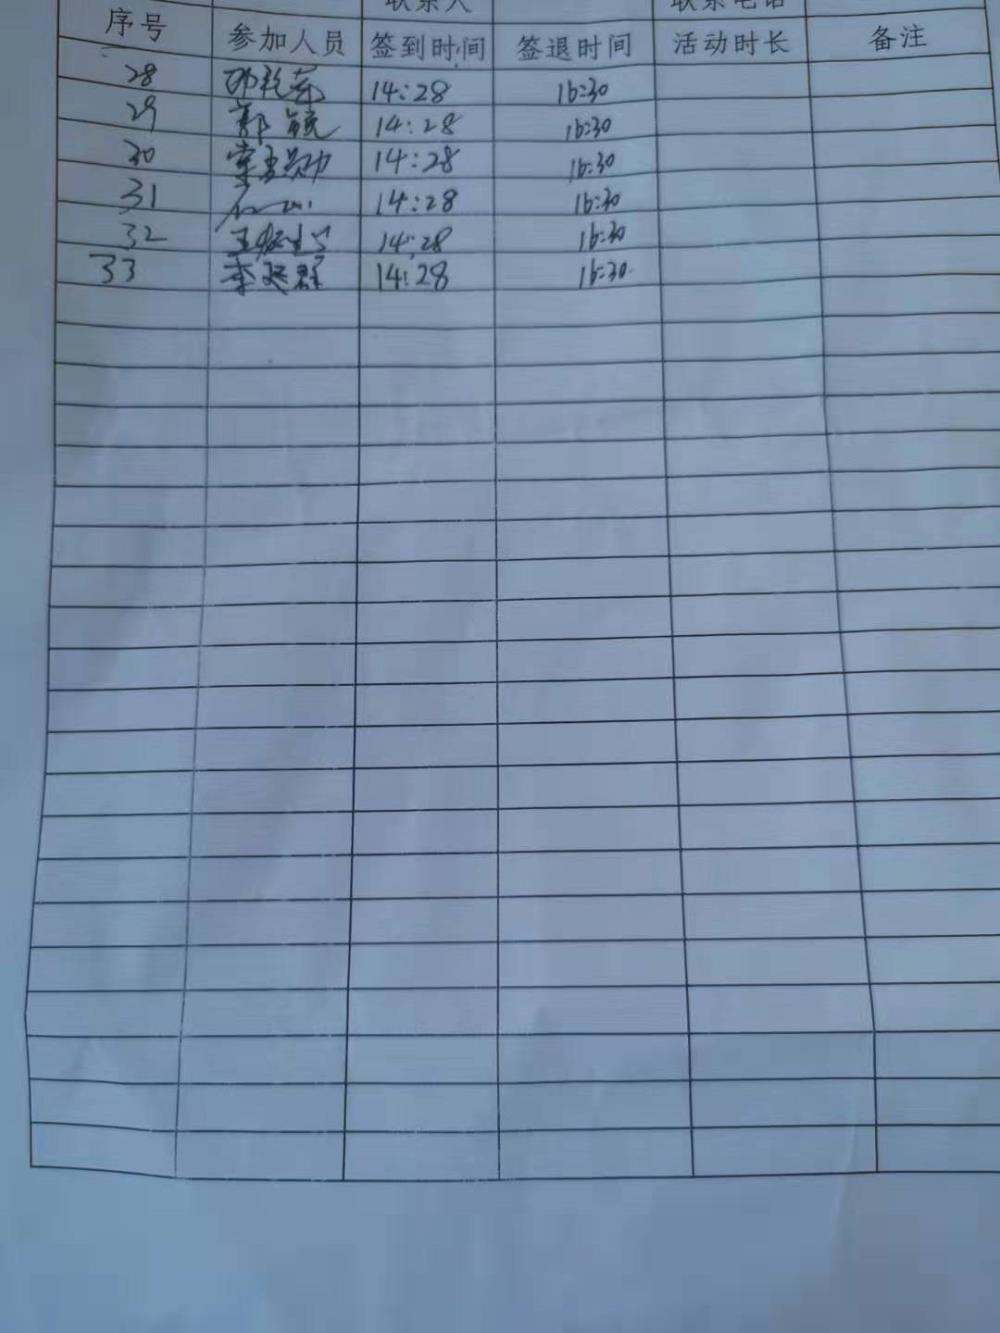 联系人 联系电话
序号 参加人员 签到时间 签退时间 活动时长 备注
28 14:28 16:30
29 郭 14:28 16:30
30 14:28 16:30
31 14:28 16:30
32 14:28 16:30
33 李延群 14:28 16:30